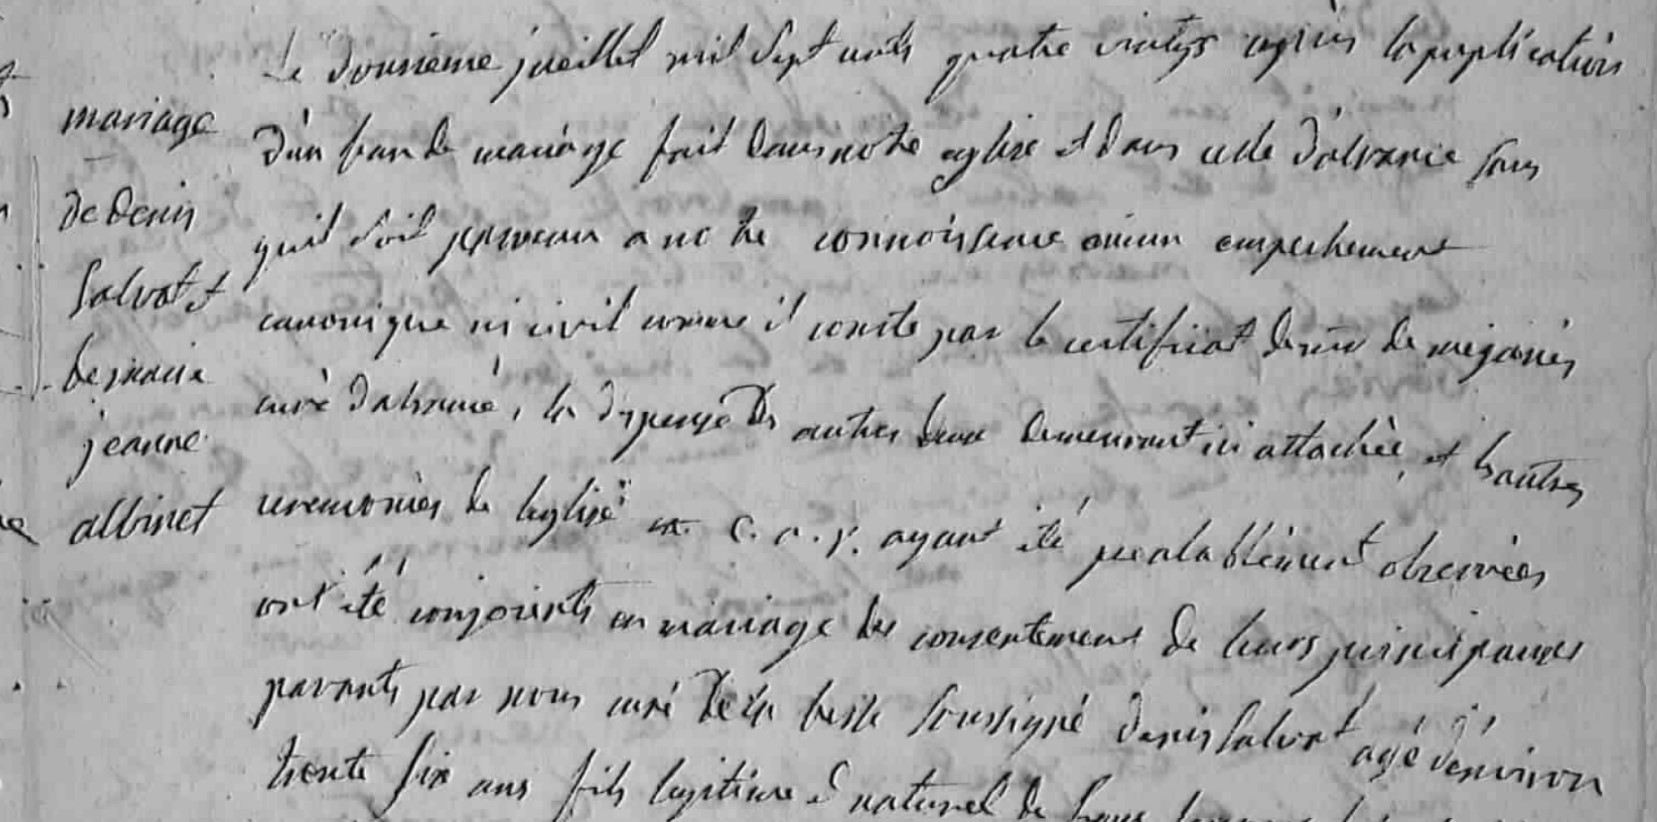 mariage
de denis
Salvat et
bernaine
jeanne
albinet
Le dousieme jueillet mil sept cents quatre vints après la puplication
d'un ban de mariage fait dans notre eglise et dans celle d'alrance sans
quil soit parvenu a notre connoissence aucun empechement
canonique ni civil comme il conste par le certificat de mr de
curé d'alrance, la dispense des autres deux demeurant ici attachée, et les autres
ceremonies de leglise c. a. r. ayant été prealablement observées
ont été conjoints en mariage du consentement de leurs principaux
parants par nous curé de la besse soussigné denis salvat agé d'environ
trente six ans fils legitime et naturel de